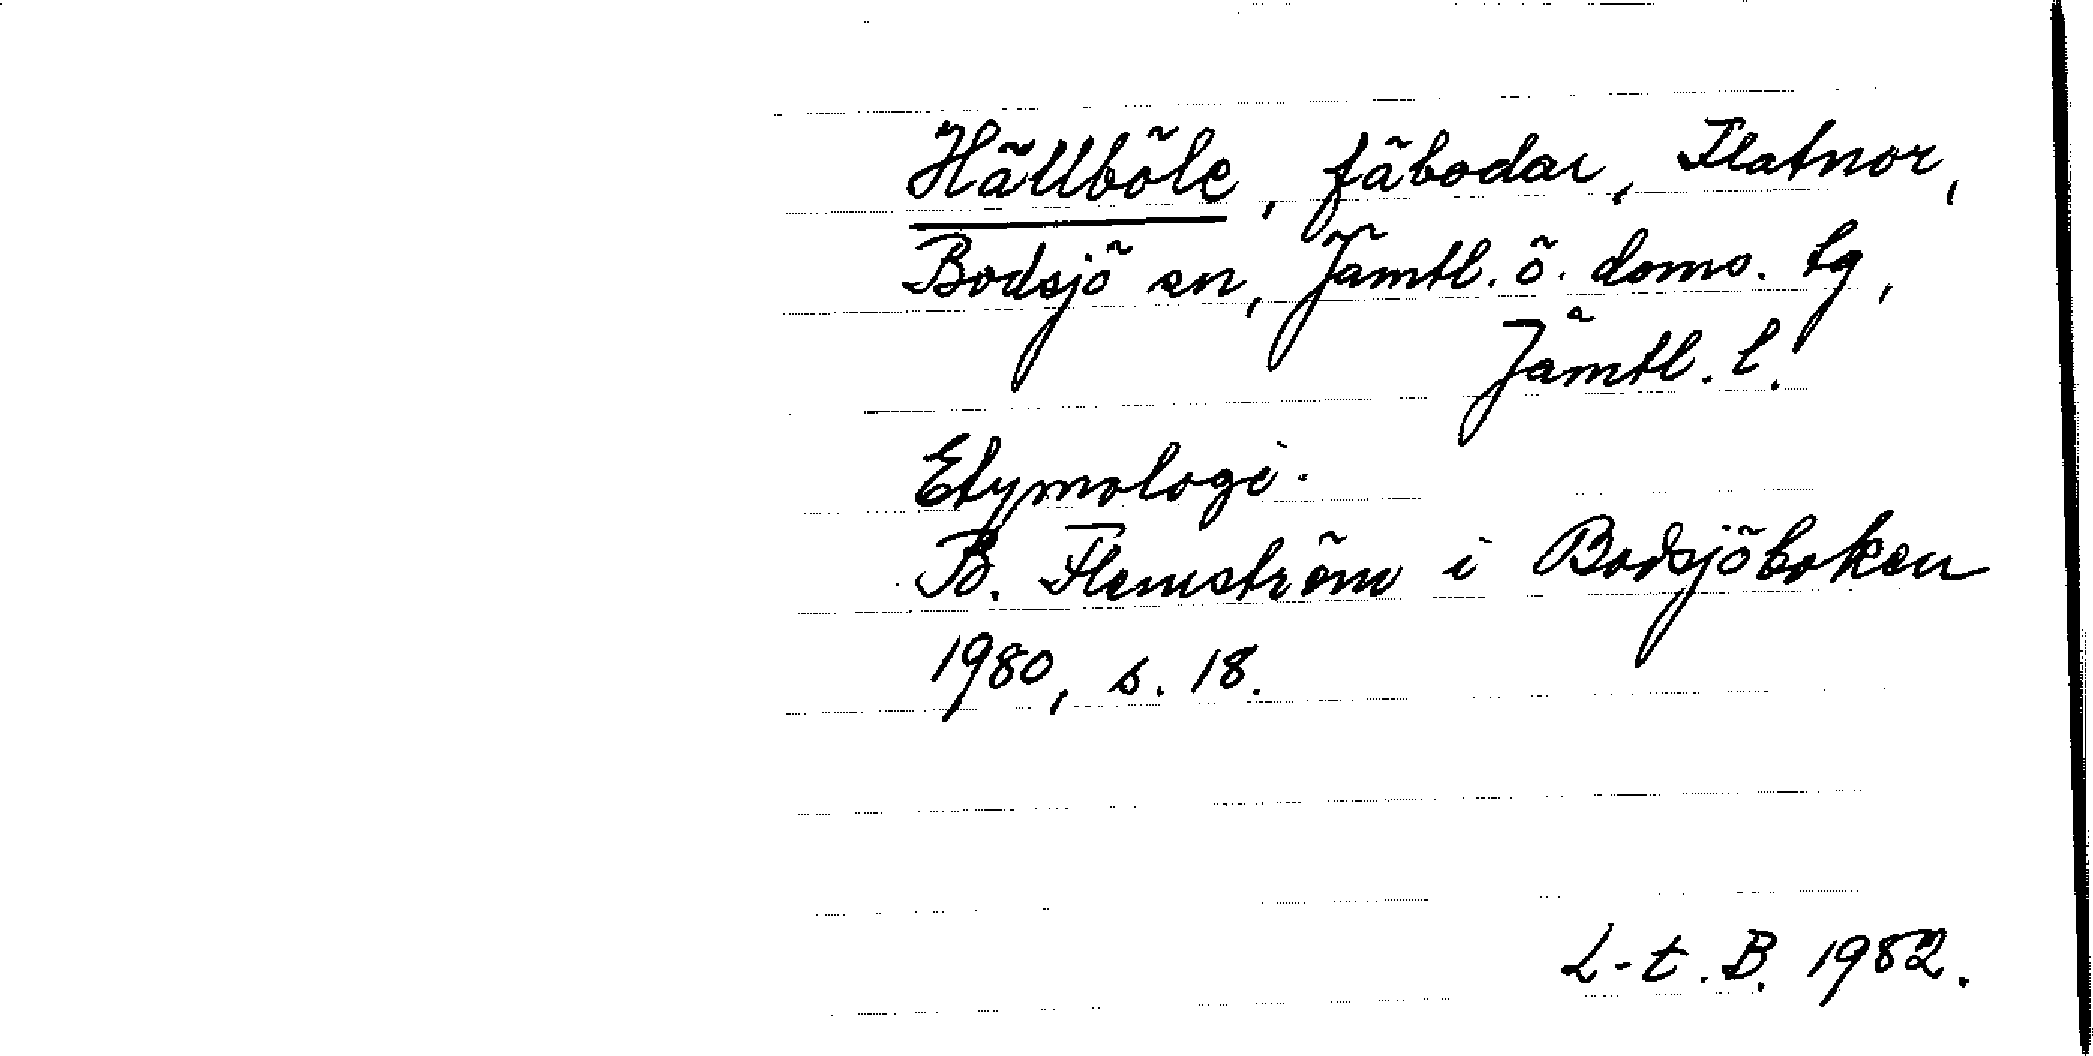 Hällböle, fäbodar, Flatnor,
Bodsjö sn, Jämtl. ö. doms. tg,
Jämtl. l.
Etymologi.
B. Flemström i Bodsjöboken
1980, s. 18.
L-t. B. 1982.